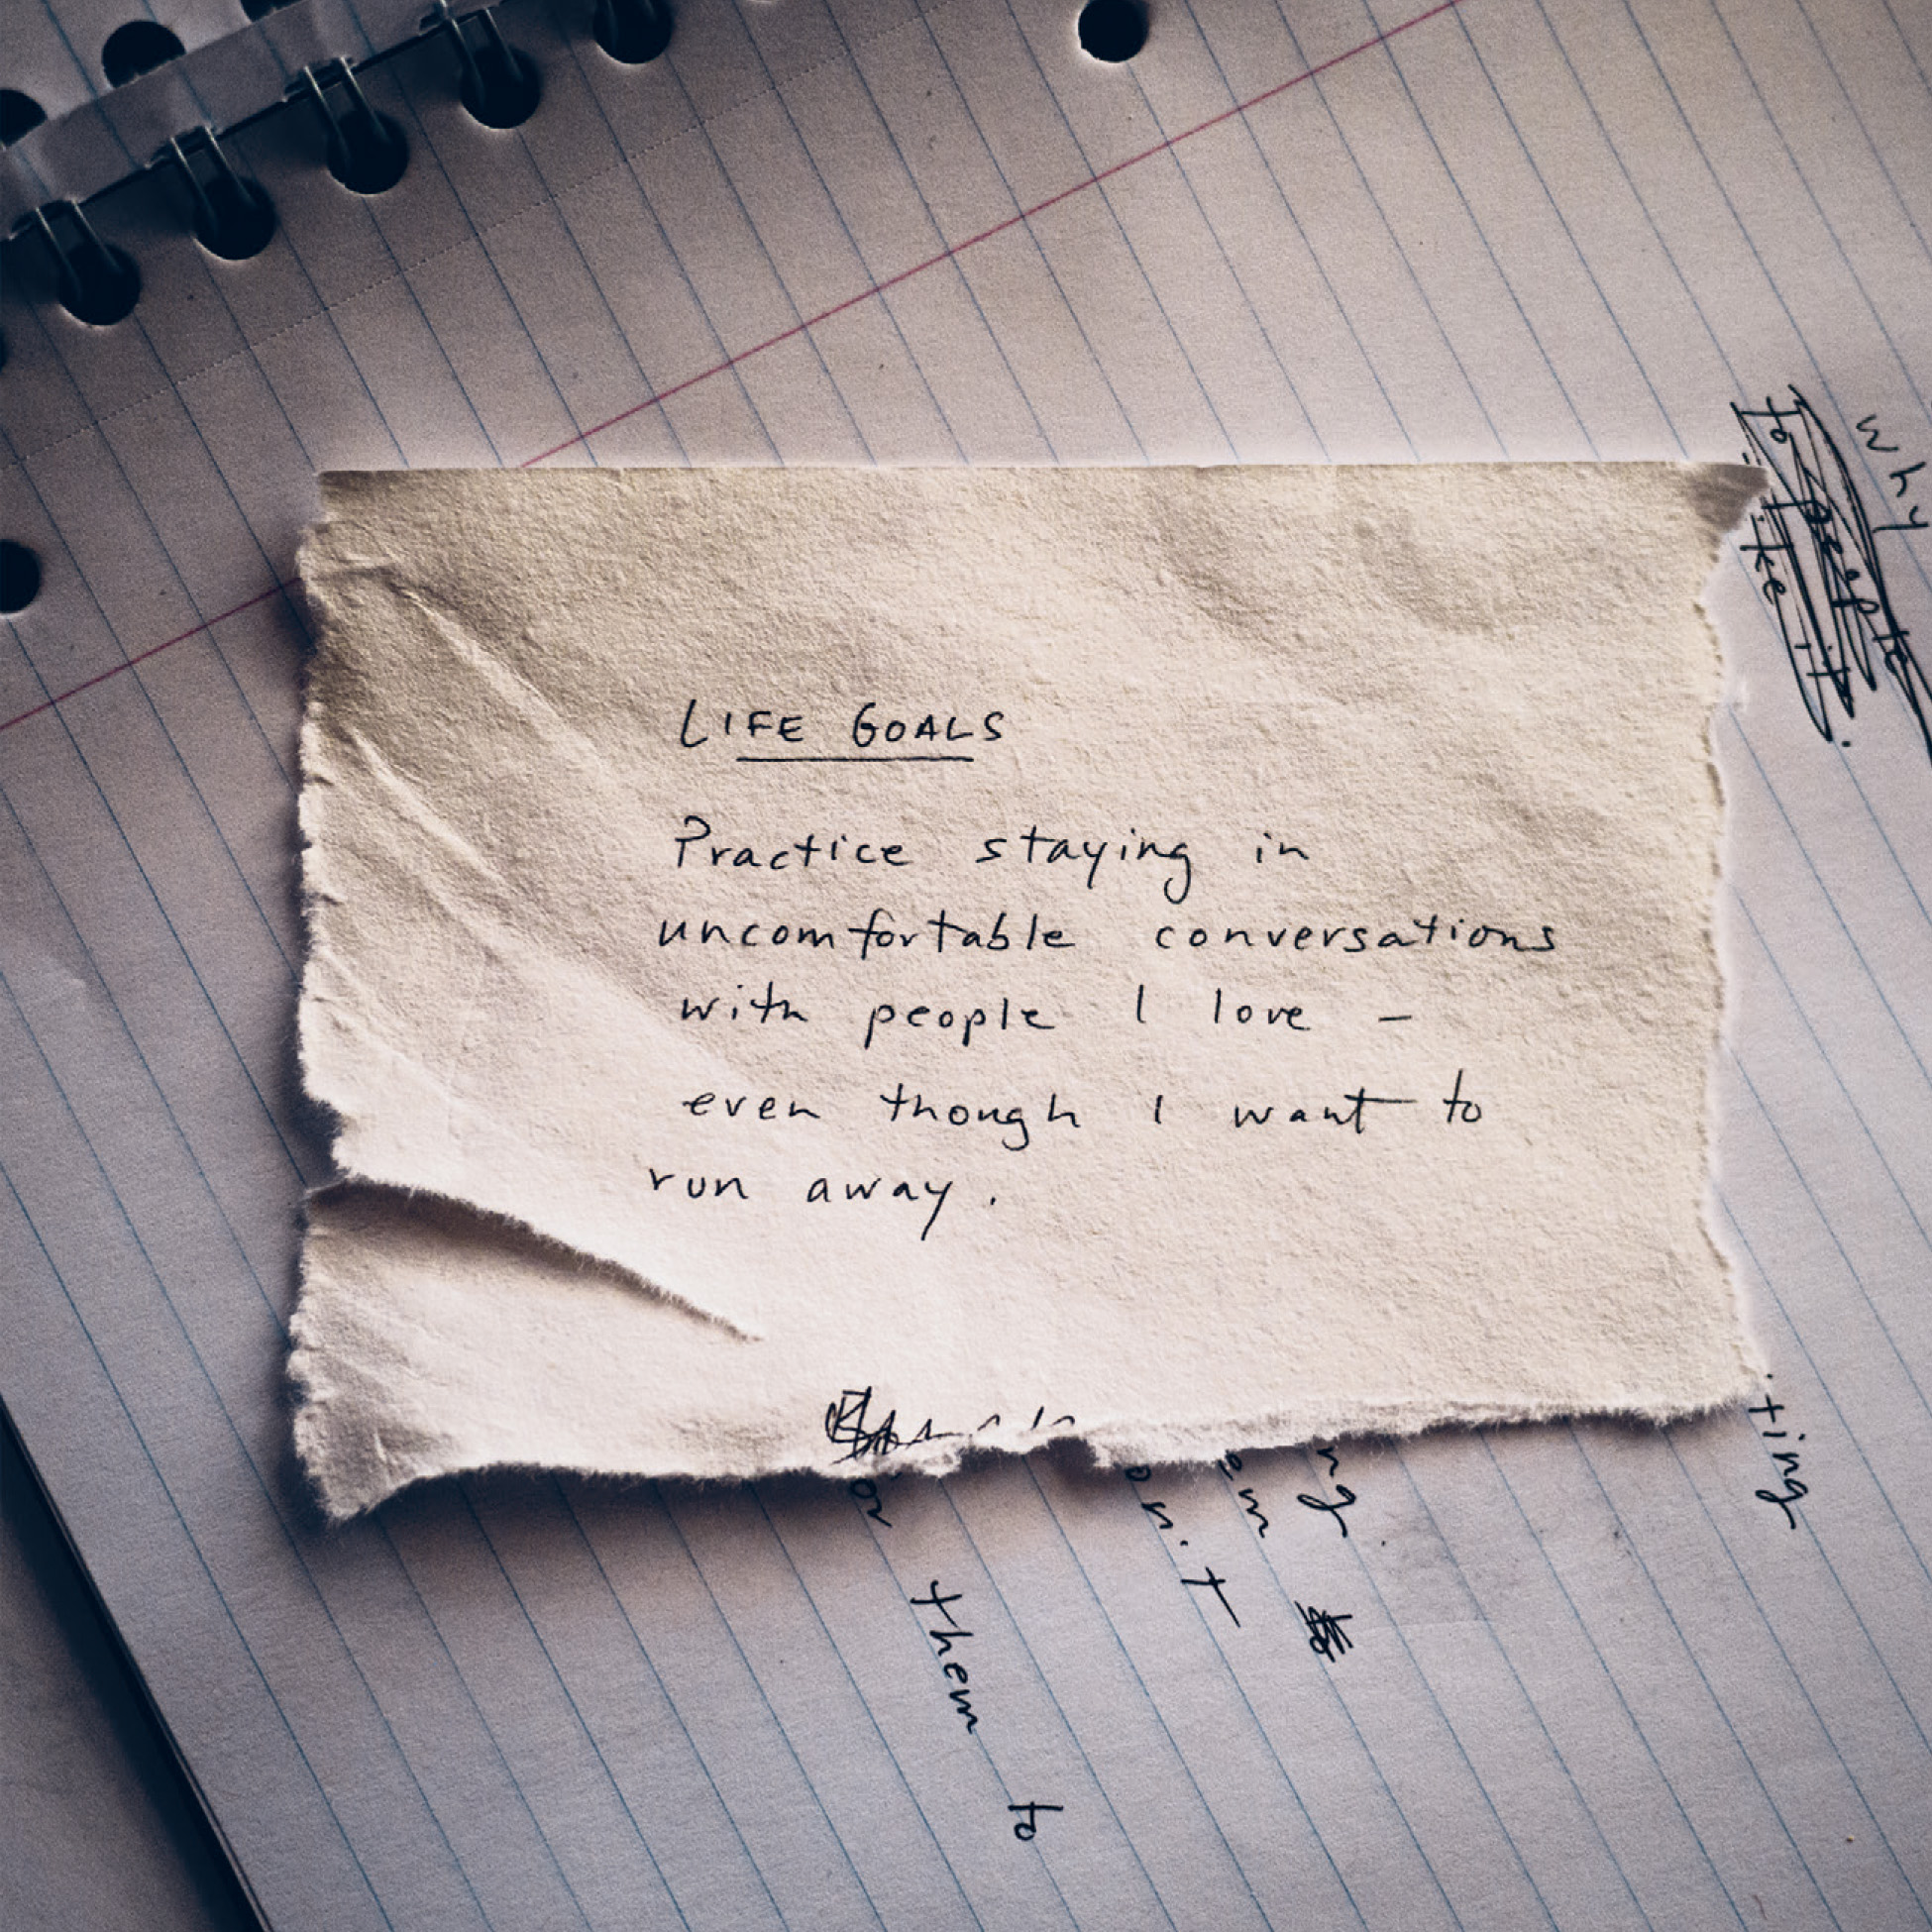 LIFE GOALS
Practice staying in
uncomfortable conversations
with people I love –
even though I want to
run away.
why
to people
like it.
ting
ng
em
on. T
or them to